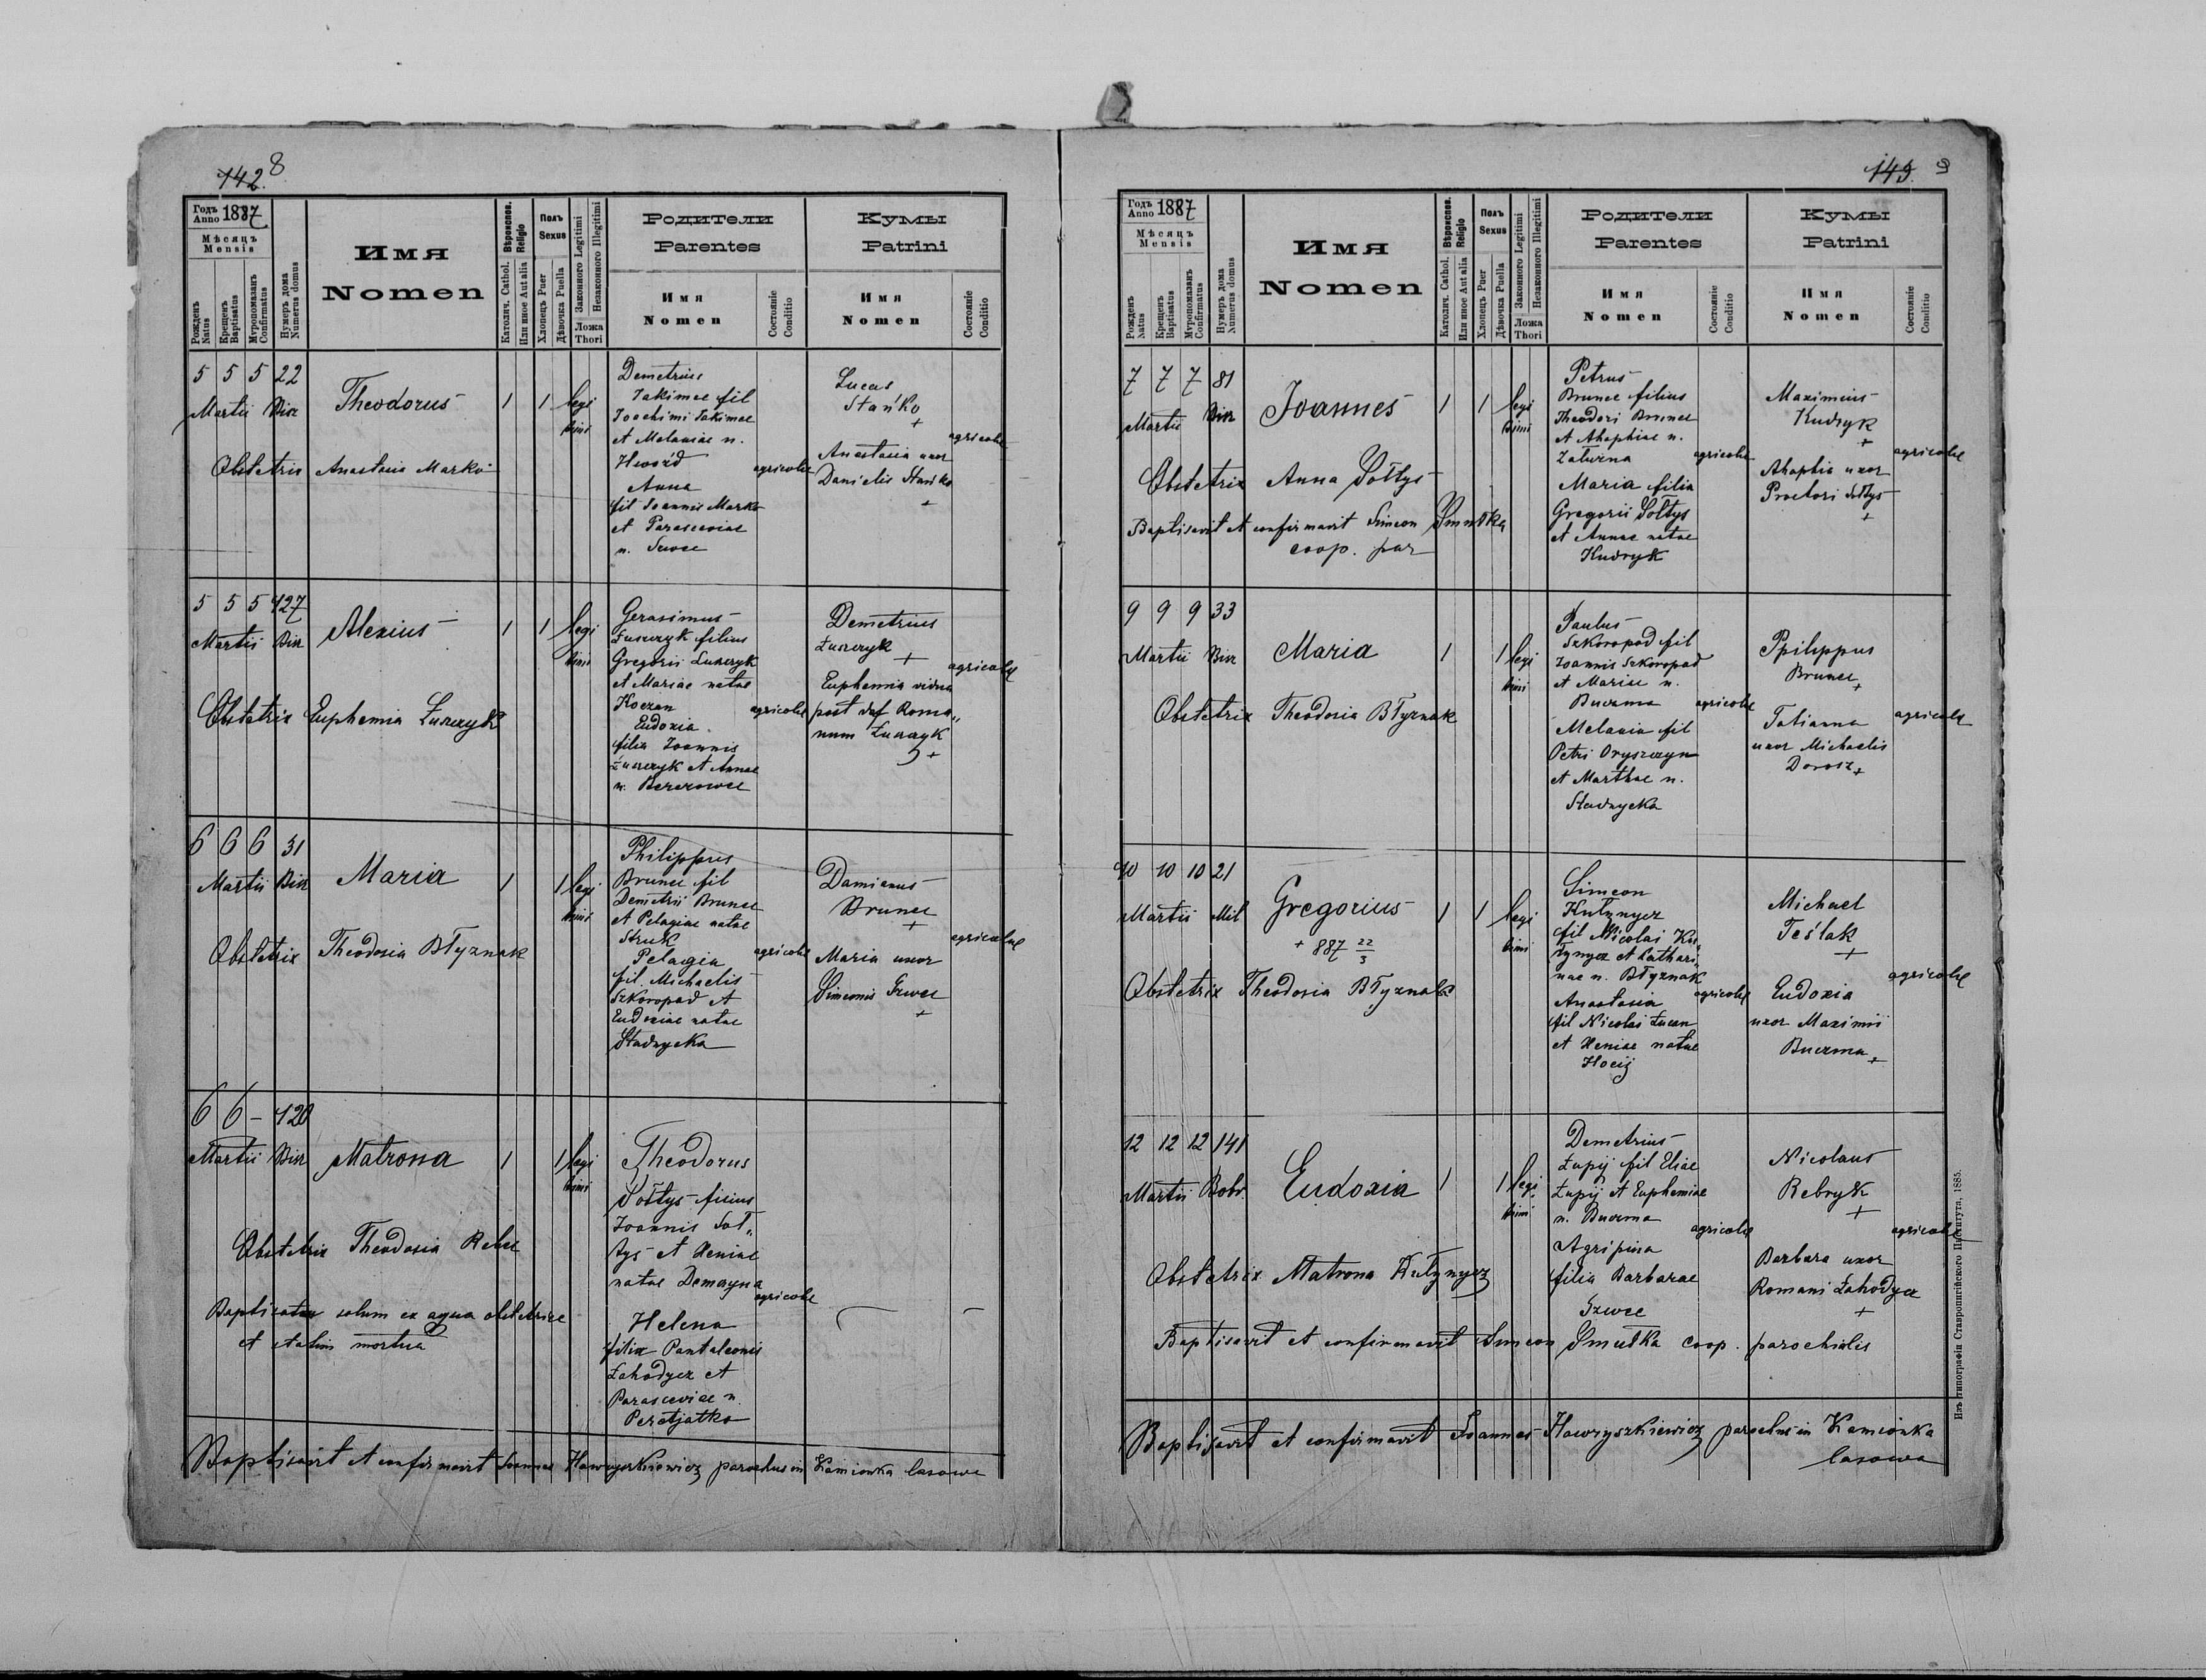 142. 8
Годъ
Anno 1887
Мѣсяцъ
Mensis
Рожденъ
Natus
Крещенъ
Baptisatus
Мѵропомазанъ
Confirmatus
Нумеръ дома
Numerus domus
Имя
Nomen
Вѣроиспов.
Religio
Католич. Cathol.
Или иное Aut alia
Полъ
Sexus
Хлопецъ Puer
Дѣвочка Puella
Законного Legitimi
Незаконного Illegitimi
Ложа
Thori
Родители
Parentes
Имя
Nomen
Состояніе
Conditio
Кумы
Patrini
Имя
Nomen
Состояніе
Conditio
5 5 5 22
Martii Bisz
Theodorus
1 1 legi
timi
Demetrius
Jakimec fil
Joachimi Jakimec
et Melaniae n.
Hwozd
Anna
fil Joannis Marko
et Parasceviae
n. Szwec
agricolae
Lucas
Stańko
+
Anastasia uxor
Danielis Stańko
+
agricolae
Obstetrix Anastasia Marko
5 5 5 127
Martii Bisz
Alexius
1 1 legi
timi
Gerasimus
Łuszczyk filius
Gregorii Łuszczyk
et Mariae natae
Koczan
Eudoxia
filia Joannis
Łuszczyk et Annae
n. Berezowec
agricolae
Demetrius
Łuszczyk
+
Euphemia vidua
post def Roma„
num Łuszczyk
+
agricolae
Obstetrix Euphemia Łuszczyk
6 6 6 31
Martii Bisz
Maria
1 1 legi
timi
Philippus
Brunec fil
Demetrii Brunec
et Pelagiae natae
Struk
Pelagia
fil. Michaelis
Szkoropad et
Eudoxiae natae
Stadnycka
agricolae
Damianus
Brunec
+
Maria uxor
Simeonis Szwec
+
agricolae
Obstetrix Theodosia Błyznak
6 6 - 120
Martii Bisz
Matrona
1 1 legi
timi
Theodorus
Sołtys filius
Joannis Soł„
tys et Xeniae
natae Demczyna
Helena
filia Pantaleonis
Łahodycz et
Parasceviae n.
Peretjatko
agricolae
Obstetrix Theodosia Rebec
Baptisata solum ex aqua obstetrice
et statim mortua
Baptisavit et confirmavit Joannes Hawryszkiewicz parochus in Kamionka lasowa
143. 9
Годъ
Anno 1887
Мѣсяцъ
Mensis
Рожденъ
Natus
Крещенъ
Baptisatus
Мѵропомазанъ
Confirmatus
Нумеръ дома
Numerus domus
Имя
Nomen
Вѣроиспов.
Religio
Католич. Cathol.
Или иное Aut alia
Полъ
Sexus
Хлопецъ Puer
Дѣвочка Puella
Законного Legitimi
Незаконного Illegitimi
Ложа
Thori
Родители
Parentes
Имя
Nomen
Состояніе
Conditio
Кумы
Patrini
Имя
Nomen
Состояніе
Conditio
7 7 7 81
Martii Bisz
Joannes
1 1 legi
timi
Petrus
Brunec filius
Theodori Brunec
et Ahaphiae n.
Zatwina
Maria filia
Gregorii Sołtys
et Annae natae
Kudryk
agricolae
Maximius
Kudryk
+
Ahaphia uxor
Proctori Sołtys
+
agricolae
Obstetrix Anna Sołtys
Baptisavit et confirmavit Simeon Smutka
coop. par
9 9 9 33
Martii Bisz
Maria
1 1 legi
timi
Paulus
Szkoropad fil
Joannis Szkoropad
et Mariae n.
Buczma
Melania fil
Petri Oryszczyn
et Marthae n.
Stadnycka
agricolae
Ppilippus
Brunec
+
Tatianna
uxor Michaelis
Dorosz +
agricolae
Obstetrix Theodosia Błyznak
10 10 10 21
Martii Mil
Gregorius
+ 887 22/3
1 1 legi
timi
Simeon
Kułynycz
fil Nicolai Ku„
łynycz et Cathari„
nae n. Błyznak
Anastasia
fil Nicolai Łucan
et Xeniae natae
Hocij
agricolae
Michael
Teślak
+
Eudoxia
uxor Maximii
Buczma +
agricolae
Obstetrix Theodosia Błyznak
12 12 12 141
Martii Bobr.
Eudoxia
1 1 legi
timi
Demetrius
Łupij fil Eliae
Łupij et Euphemiae
n. Buczma
Agripina
filia Barbarae
Szwec
agricolae
Nicolaus
Rebryk
+
Barbara uxor
Romani Łahodycz
+
agricolae
Obstetrix Matrona Kułynycz
Baptisavit et confirmavit Simeon Smutka coop. parochialis
Baptisavit et confirmavit Joannes Hawryszkiewicz parochus in Kamionka
lasowa
Изъ типографіи Ставропигійского Института, 1885.